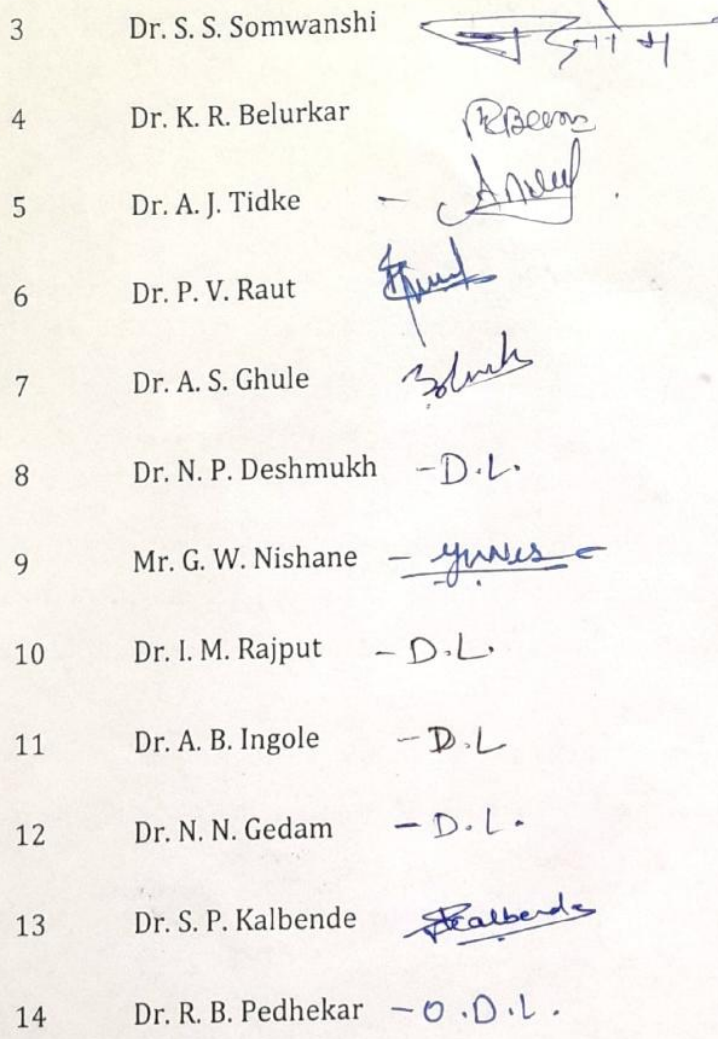 3 Dr. S. S. Somwanshi
4 Dr. K. R. Belurkar
5 Dr. A. J. Tidke -
6 Dr. P. V. Raut
7 Dr. A. S. Ghule
8 Dr. N. P. Deshmukh - D.L.
9 Mr. G. W. Nishane -
10 Dr. I. M. Rajput - D.L.
11 Dr. A. B. Ingole - D.L
12 Dr. N. N. Gedam - D.L.
13 Dr. S. P. Kalbende Skalbende
14 Dr. R. B. Pedhekar - O.D.L.